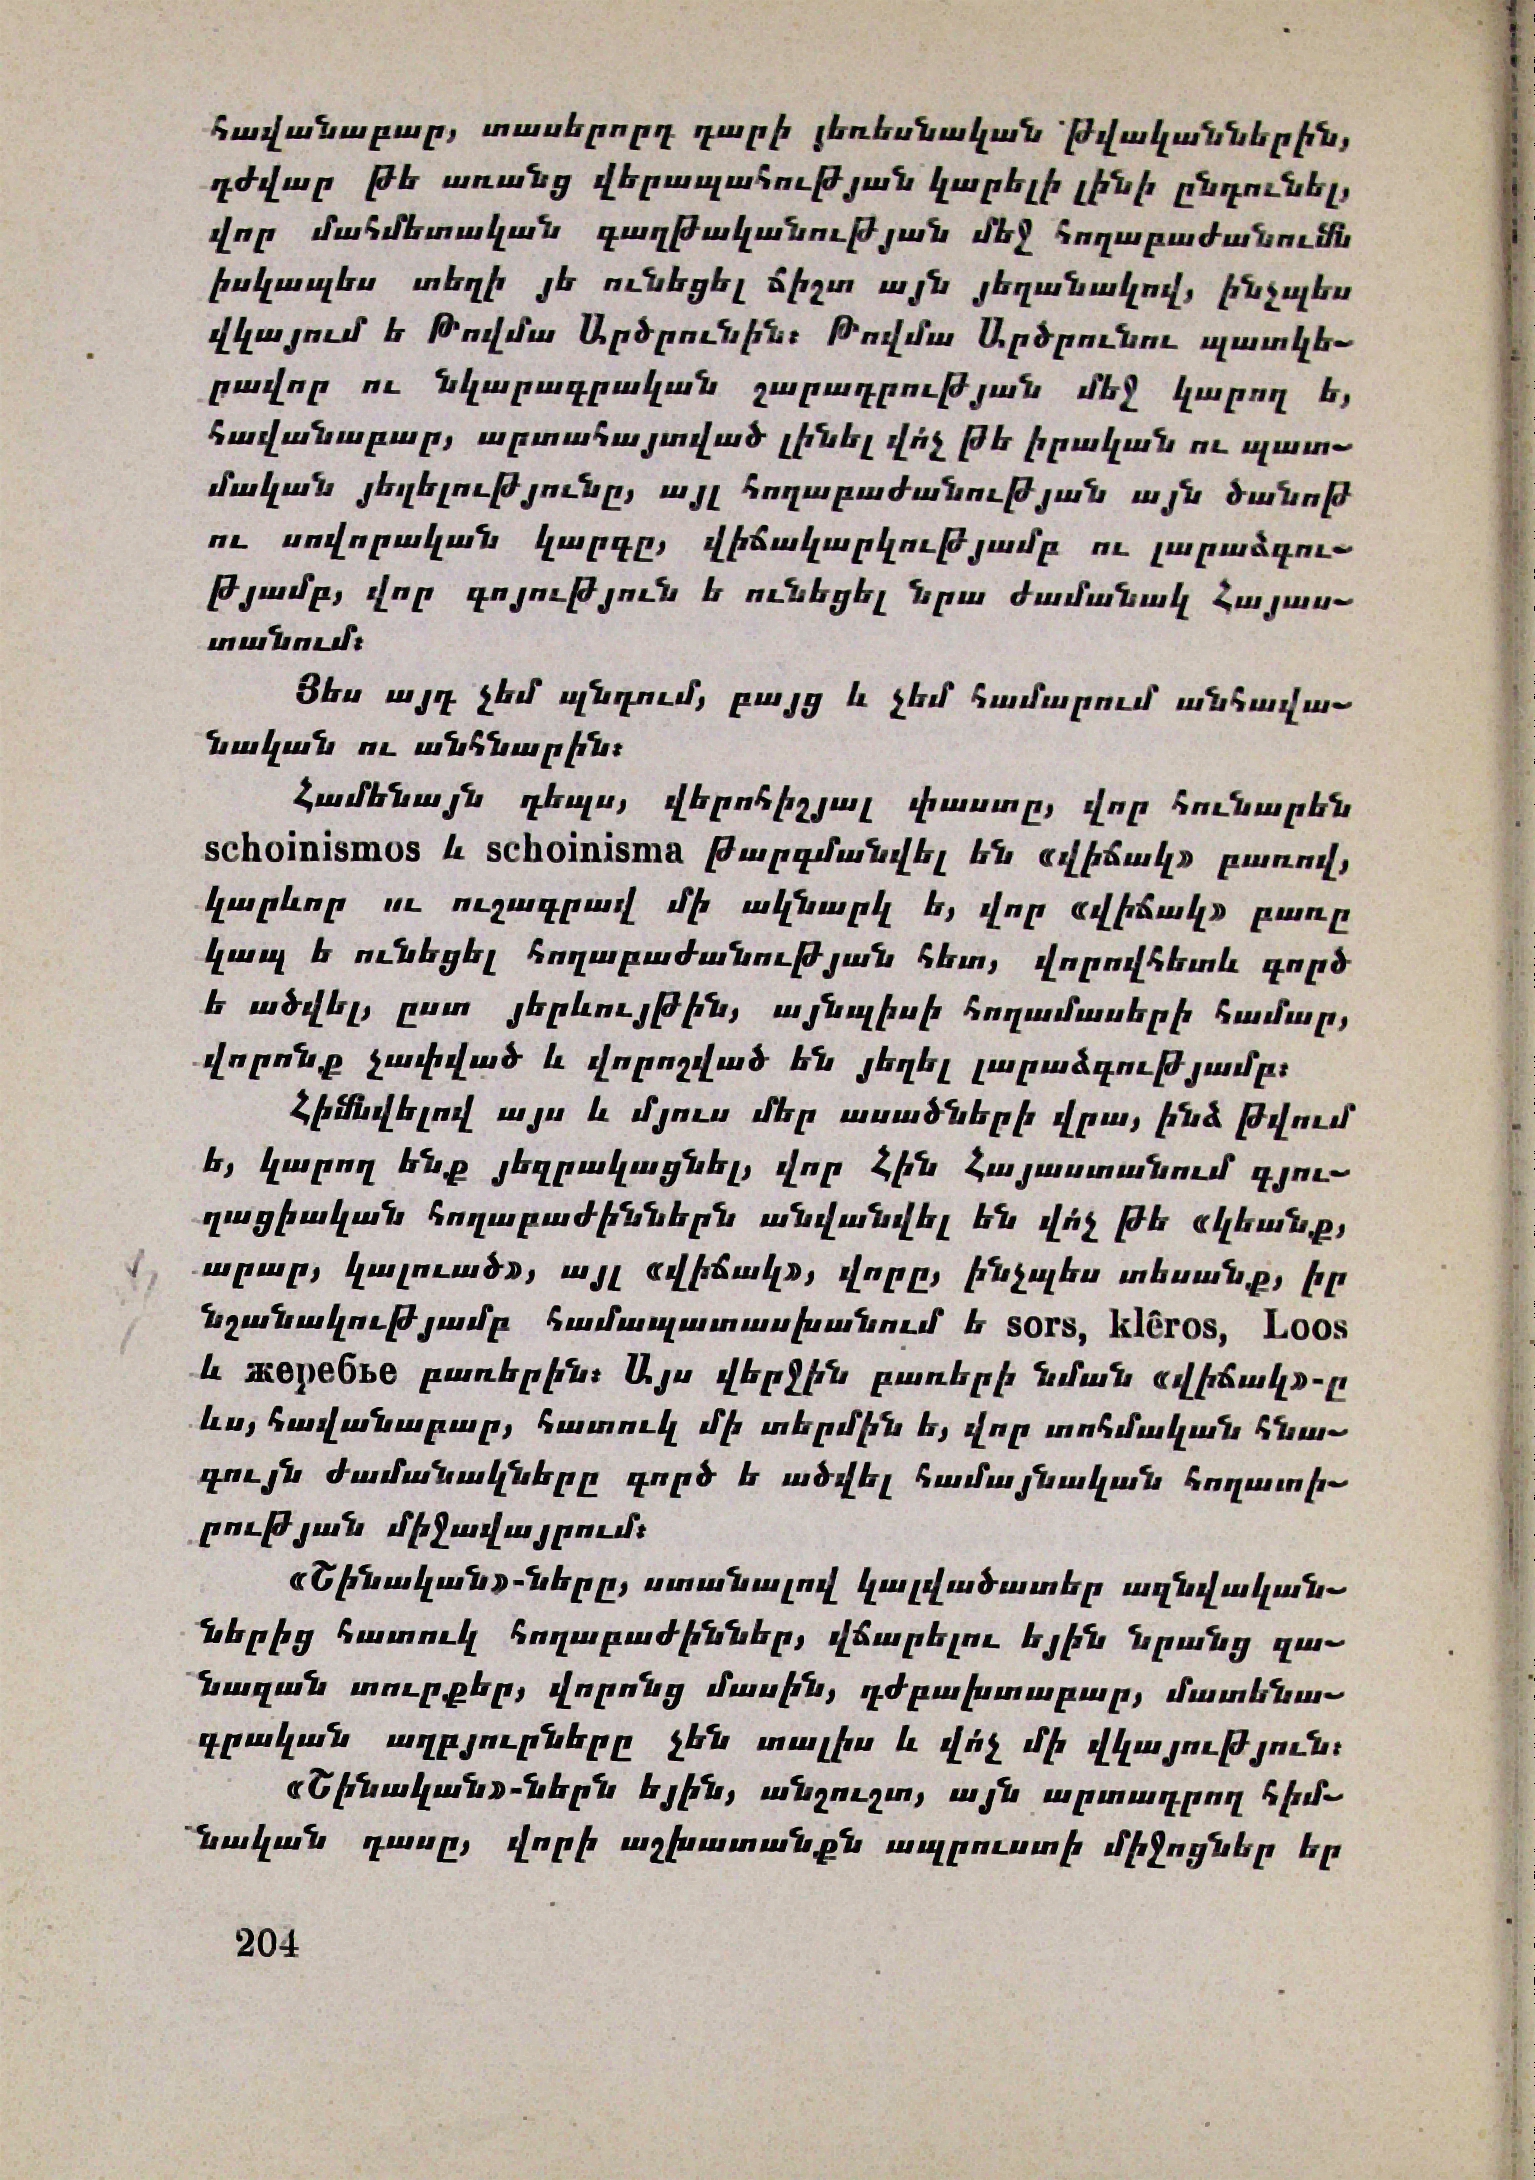 հավանաբար, տասերորդ դարի յեռեսնական թվականներին,
դժվար թե առանց վերապահության կարելի լինի ընդունել,
վոր մահմետական գաղթականության մեջ հողաբաժանումն
իսկապես տեղի յե ունեցել ճիշտ այն յեղանակով, ինչպես
վկայում ե Թովմա Արծրունին։ Թովմա Արծրունու պատկե-
րավոր ու նկարագրական շարադրության մեջ կարող ե,
հավանաբար, արտահայտված լինել վո՛չ թե իրական ու պատ-
մական յեղելությունը, այլ հողաբաժանության այն ծանոթ
ու սովորական կարգը, վիճակարկությամբ ու լարաձգու-
թյամբ, վոր գոյություն ե ունեցել նրա ժամանակ Հայաս-
տանում։
Յես այդ չեմ պնդում, բայց և չեմ համարում անհավա-
նական ու անհնարին։
Համենայն դեպս, վերոհիշյալ փաստը, վոր հունարեն
schoinismos և schoinisma թարգմանվել են «վիճակ» բառով,
կարևոր ու ուշագրավ մի ակնարկ ե, վոր «վիճակ» բառը
կապ ե ունեցել հողաբաժանության հետ, վորովհետև գործ
ե ածվել, ըստ յերևույթին, այնպիսի հողամասերի համար,
վորոնք չափված և վորոշված են յեղել լարաձգությամբ։
Հիմնվելով այս և մյուս մեր ասածների վրա, ինձ թվում
ե, կարող ենք յեզրակացնել, վոր Հին Հայաստանում գյու-
ղացիական հողաբաժիններն անվանվել են վո՛չ թե «կեանք,
արար, կալուած», այլ «վիճակ», վորը, ինչպես տեսանք, իր
նշանակությամբ համապատասխանում ե sors, klêros, Loos
և жеребье բառերին։ Այս վերջին բառերի նման «վիճակ»-ը
ևս, հավանաբար, հատուկ մի տերմին ե, վոր տոհմական հնա-
գույն ժամանակները գործ ե ածվել համայնական հողատի-
րության միջավայրում։
«Շինական»-ները, ստանալով կալվածատեր ազնվական-
ներից հատուկ հողաբաժիններ, վճարելու եյին նրանց զա-
նազան տուրքեր, վորոնց մասին, դժբախտաբար, մատենա-
գրական աղբյուրները չեն տալիս և վո՛չ մի վկայություն։
«Շինական»-ներն եյին, անշուշտ, այն արտադրող հիմ-
նական դասը, վորի աշխատանքն ապրուստի միջոցներ եր
204